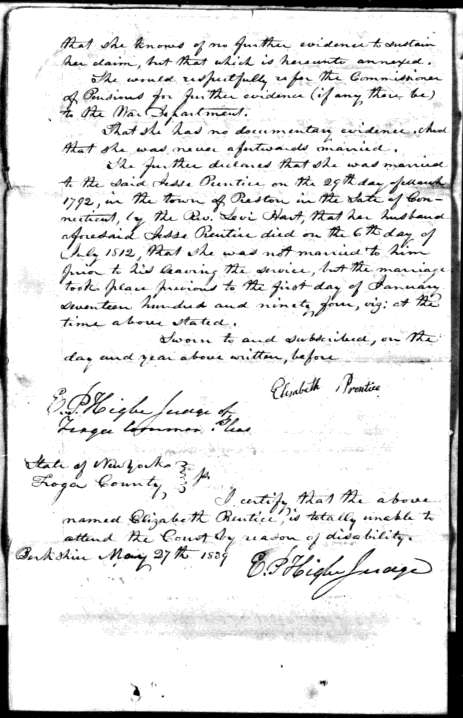 that she knows of no further evidence to sustain
her claim, but that which is hereunto annexed.
She would respectfully refer the Commissioner
of Pensions for further evidence (if any there be)
to the War Department.
That she has no documentary evidence. And
that she was never afterwards married.
She further declares that she was married
to the said Jesse Prentice on the 29th day of March
1792, in the town of Preston in the State of Con-
necticut, by the Rev. Levi Hart, that her husband
aforesaid Jesse Prentice died on the 6th day of
July 1812, that she was not married to him
prior to his leaving the service, but the marriage
took place previous to the first day of January
seventeen hundred and ninety four, viz: at the
time above stated.
Sworn to and subscribed, on the
day and year above written, before
Elizabeth Prentice
E. P. Higbe Judge of
Tioga Common Pleas
State of New York
Tioga County, ss
I certify, that the above
named Elizabeth Prentice, is totally unable to
attend the Court by reason of disability.
Berkshire May 27th 1839
E. P. Higbe Judge